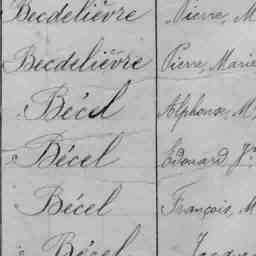 Becdelièvre Pierre, M
Becdelièvre Pierre, Marie
Bécel Alphonse, M
Bécel Edouard, Jn
Bécel François, M
Bécel